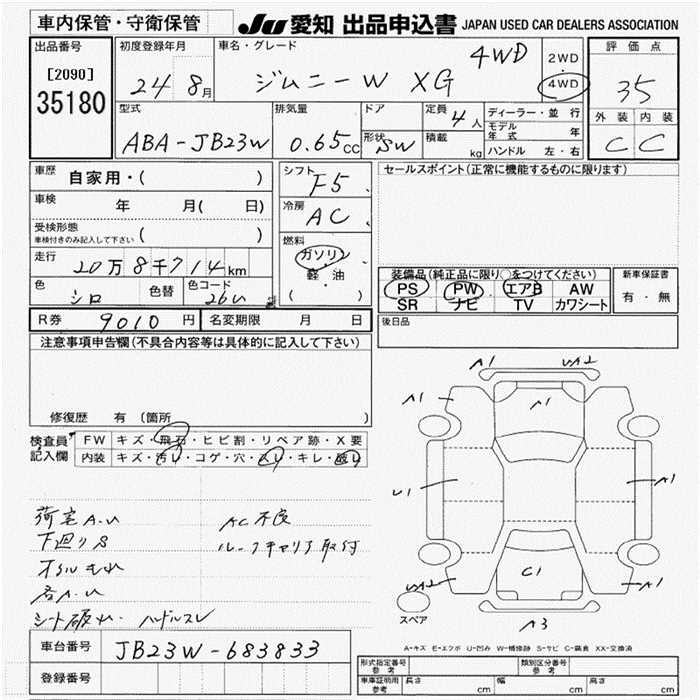 車内保管・守衛保管 JU 愛知 出品申込書 JAPAN USED CAR DEALERS ASSOCIATION
出品番号 [2090] 35180
初度登録年月 24 8月
車名・グレード ジムニー W XG 4WD
2WD 4WD
評価点 35
外装 内装
C C
型式 ABA-JB23W
排気量 0.65cc
ドア
形状 SW
定員 4人
積載 kg
ディーラー・並行
モデル年式 年
ハンドル 左・右
車歴 自家用・( )
車検 年 月( 日)
受検形態 ( )
車検付きのみ記入して下さい
走行 20万8千714km
色 シロ 色替 色コード 26U
シフト F5
冷房 AC
燃料 ガソリン
軽・油
( )
セールスポイント(正常に機能するものに限ります)
装備品(純正品に限り○をつけてください)
PS PW エアB AW
SR ナビ TV カワシート
新車保証書
有・無
後日品
R券 9010円 名変期限 月 日
注意事項申告欄(不具合内容等は具体的に記入して下さい)
修復歴 有(箇所 )
検査員記入欄
FW キズ・飛石・ヒビ割・リペア跡・X要
内装 キズ・汚レ・コゲ・穴・スレ・キレ・破レ
荷室A.U
AC不良
下廻りS
ルーフキャリア取付
オイルもれ
シート破れ・ハンドルスレ
A1 UA2
A1 A1
U1 A1
C1
UA2 A1
A3
スペア
A-キズ E-エクボ U-凹み W-補修跡 S-サビ C-腐食 XX-交換済
車台番号 JB23W-683833
登録番号
形式指定番号 参考
類別区分番号 参考
車庫証明用 参考 長さ cm 幅 cm 高さ cm